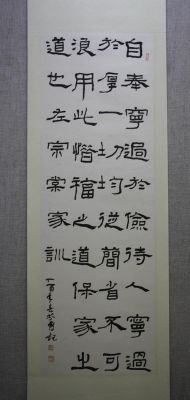 自奉寧過於儉待人寧過
於厚一切均從簡省不可
浪用此惜福之道保家之
道也左宗棠家訓